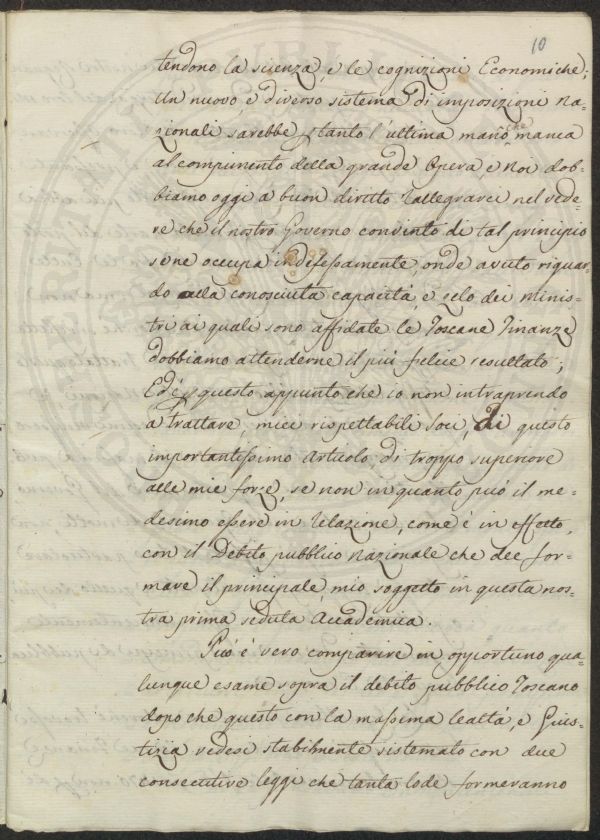 10
tendono la scienza, e le cognizioni Economiche;
Un nuovo, e diverso sistema di imposizioni Na-
zionali sarebbe ptanto l'ultima mano che manca
al compimento della grande Opera, e Noi dob-
biamo oggi a buon diritto rallegrarci nel vede-
re che il nostro Governo convinto di tal principio
se ne occupa indefessamente, onde avuto riguar-
do alla conosciuta capacità, e zelo dei Minis-
tri ai quali sono affidate le Toscane Finanze
dobbiamo attenderne il più felice resultato;
Ed è p questo appunto che io non intraprendo
a trattare, miei rispettabili Soci, di questo
importantissimo Articolo, di troppo superiore
alle mie forze, se non in quanto può il me-
desimo essere in relazione, come è in effetto,
con il Debito pubblico Nazionale che dee for-
mare il principale mio soggetto in questa nos-
tra prima seduta Accademica.
Può è vero comparire in opportuno qua-
lunque esame sopra il debito pubblico Toscano
dopo che questo con la massima lealtà, e Gius-
tizia vedesi stabilmente sistemato con due
consecutive leggi che tanta lode formeranno